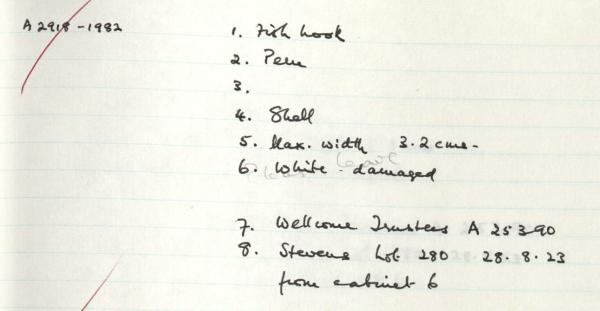 A 2918-1982
1. Fish hook
2. Peru
3.
4. Shell
5. Max. width 3.2 cms-
Please leave
6. White - damaged
7. Wellcome Trustees A 25390
8. Stevens Lot 280 28.8.23
from cabinet 6